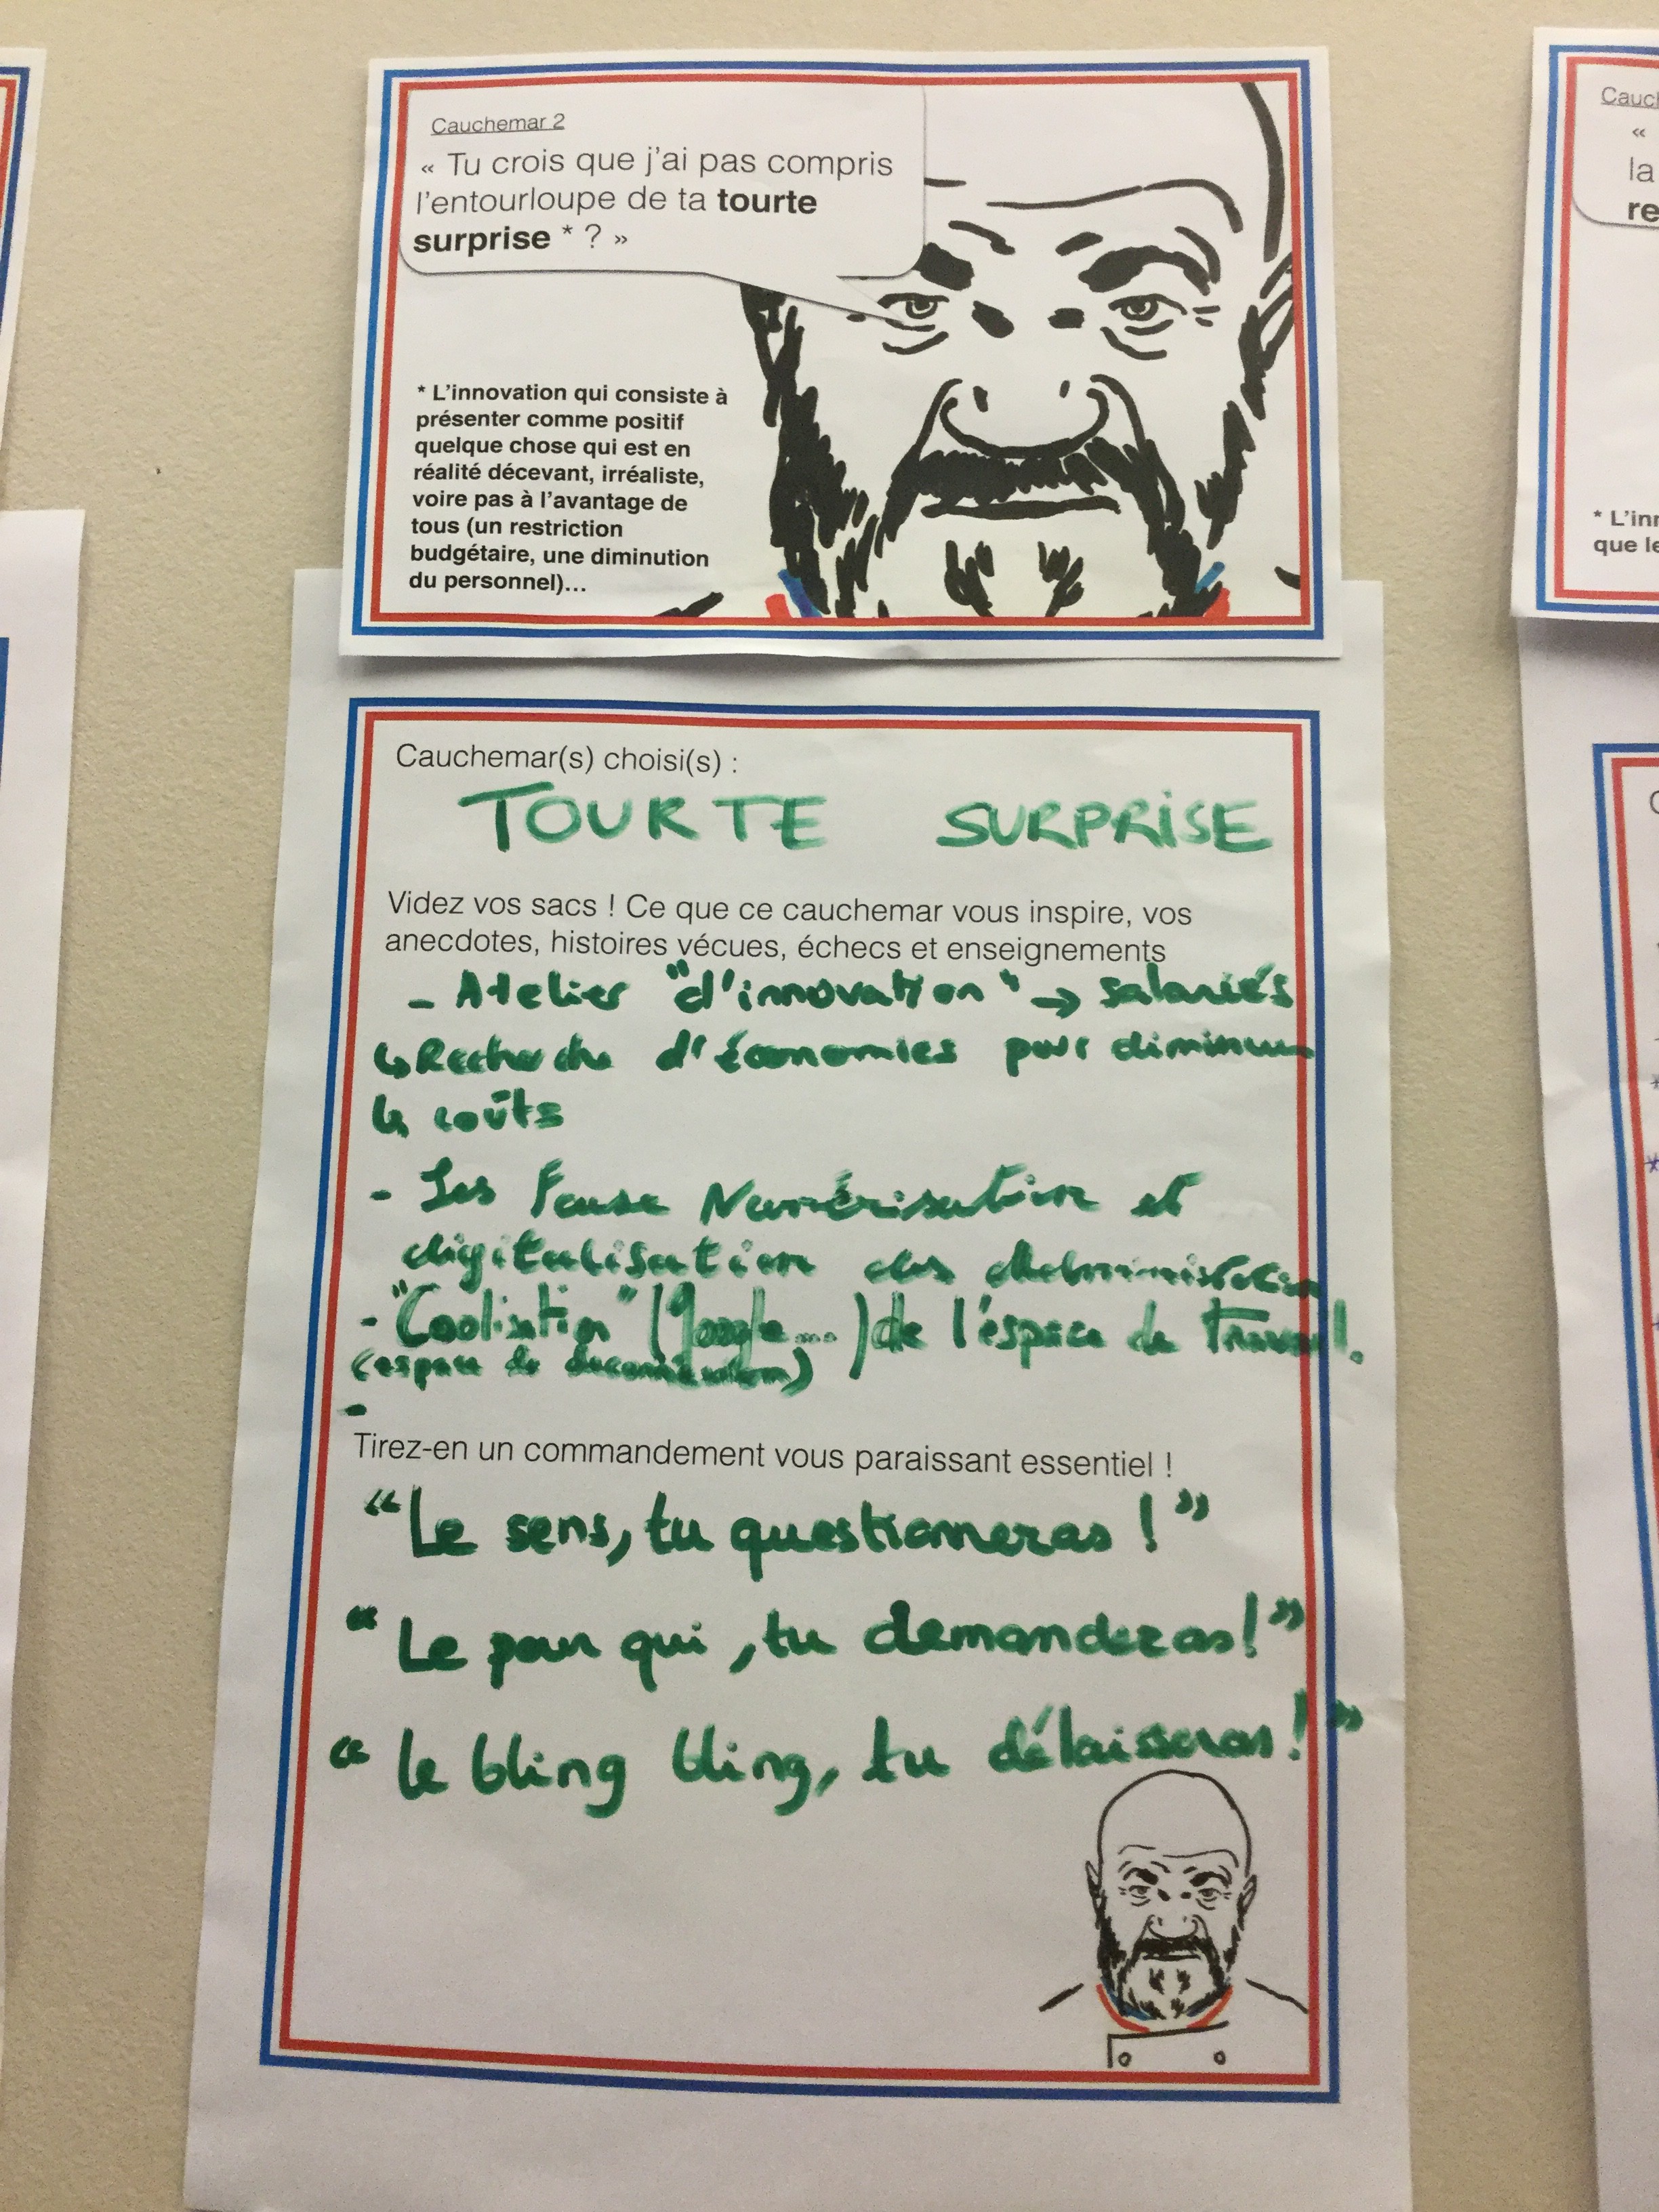 Cauchemar 2
« Tu crois que j'ai pas compris
l'entourloupe de ta tourte
surprise * ? »
* L'innovation qui consiste à
présenter comme positif
quelque chose qui est en
réalité décevant, irréaliste,
voire pas à l'avantage de
tous (un restriction
budgétaire, une diminution
du personnel)...
Cauchemar(s) choisi(s) :
TOURTE SURPRISE
Videz vos sacs ! Ce que ce cauchemar vous inspire, vos
anecdotes, histoires vécues, échecs et enseignements
- Atelier "d'innovation" → salariés
↳ Recherche d'économies pour diminuer
les coûts
- Les Fausse Numérisation et
digitalisation des
- "Coolisation" (Google...) de l'espace de travail.
(espace de deconnexion)
-
Tirez-en un commandement vous paraissant essentiel !
"Le sens, tu questionneras !"
"Le pour qui, tu demanderas !"
"le bling bling, tu délaisseras !"
«
la
re
* L'inn
que le